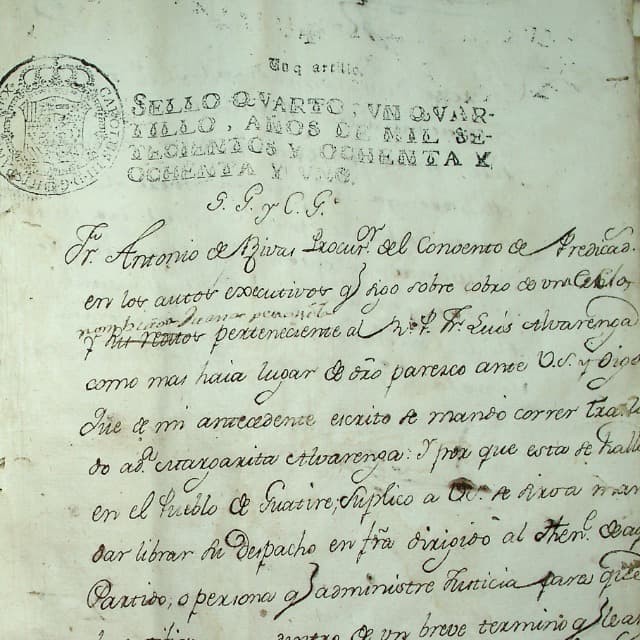 Un q artillo.
SELLO QVARTO, VN QVAR-
TILLO, AÑOS DE MIL SE-
TECIENTOS Y OCHENTA Y
OCHENTA Y VNO.
S. G. y C. G.
Fr. Antonio de Rivas Procur.or del Convento de Predicad.
en los autos executivos q sigo sobre cobro de un
y sus reditos perteneciente al R. P. Fr. Luis Alvarenga
como mas haia lugar de dro paresco ante V.S. y Digo
Que de mi antecedente escrito se mandó correr trasla
do a d.a Margarita Alvarenga: Y por que esta se halla
en el Pueblo de Guatire, suplico a V.S. se sirva man
dar librar su Despacho en fra dirigido al Then.te de aq
Partido, o persona q administre Justicia para que
dentro de un breve termino q le